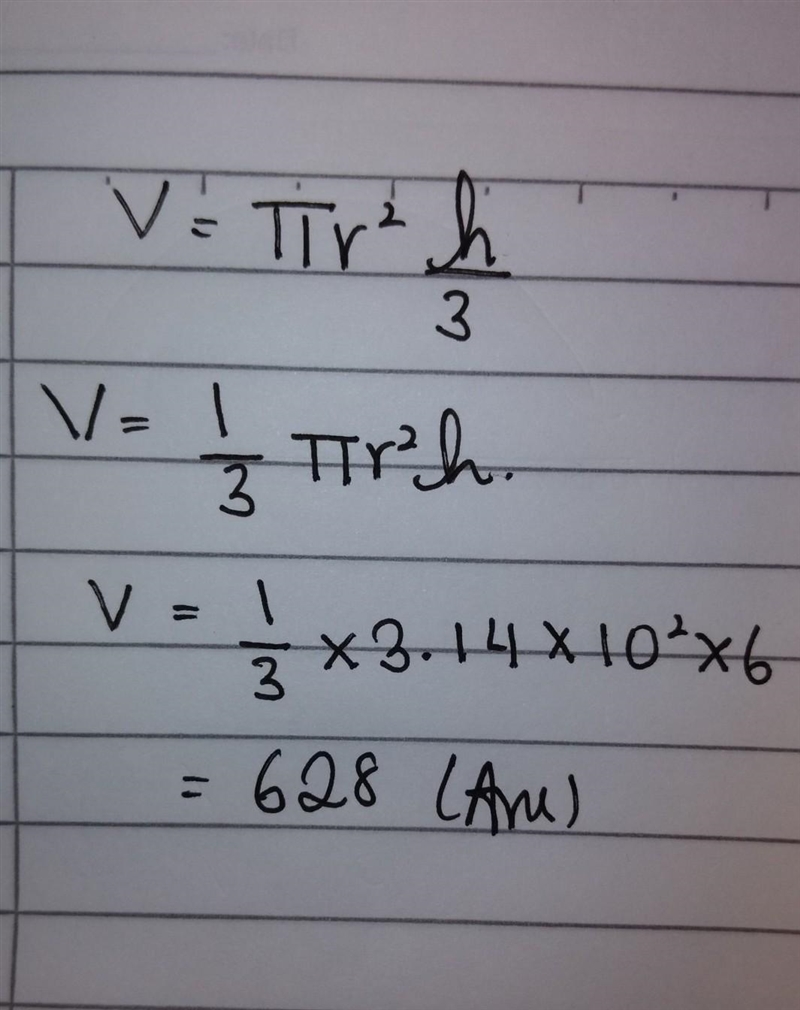 V = πr² h/3
V = 1/3 πr²h.
V = 1/3 × 3.14 × 10² × 6
= 628 (Ans)